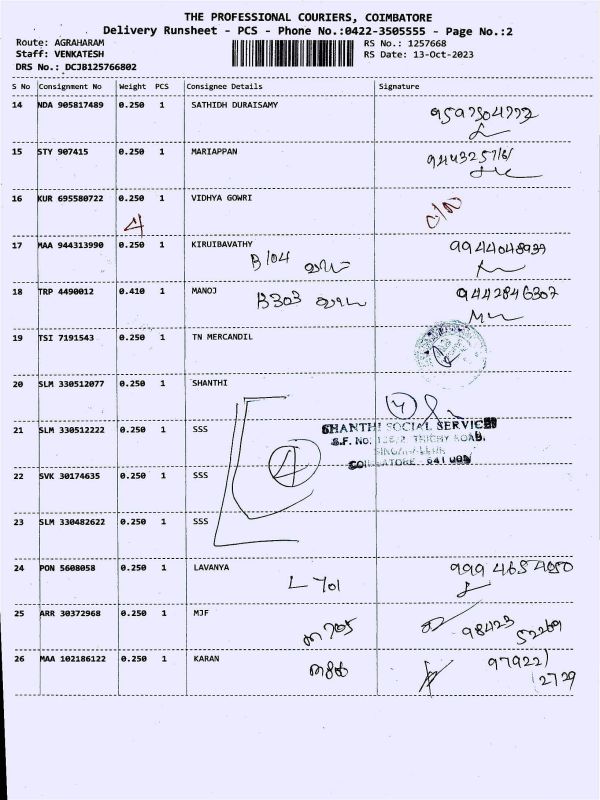 THE PROFESSIONAL COURIERS, COIMBATORE
Delivery Runsheet - PCS - Phone No.:0422-3505555 - Page No.:2
Route: AGRAHARAM RS No.: 1257668
Staff: VENKATESH RS Date: 13-Oct-2023
DRS No.: DCJB125766802
S No Consignment No Weight PCS Consignee Details Signature
14 NDA 905817489 0.250 1 SATHIDH DURAISAMY
15 STY 907415 0.250 1 MARIAPPAN
16 KUR 695580722 0.250 1 VIDHYA GOWRI
17 MAA 944313990 0.250 1 KIRUIBAVATHY
B/04
18 TRP 4490012 0.410 1 MANOJ 9442846307
B303
19 TSI 7191543 0.250 1 TN MERCANDIL
20 SLM 330512077 0.250 1 SHANTHI
4
21 SLM 330512222 0.250 1 SSS SHANTHI SOCIAL SERVICES
S.F. No: TRICHY ROAD,
4
22 SVK 30174635 0.250 1 SSS
COIMBATORE - 641 005
23 SLM 330482622 0.250 1 SSS
24 PON 5608058 0.250 1 LAVANYA 999 4654050
L 701
25 ARR 30372968 0.250 1 MJF
98423
52269
26 MAA 102186122 0.250 1 KARAN 97922/
2729